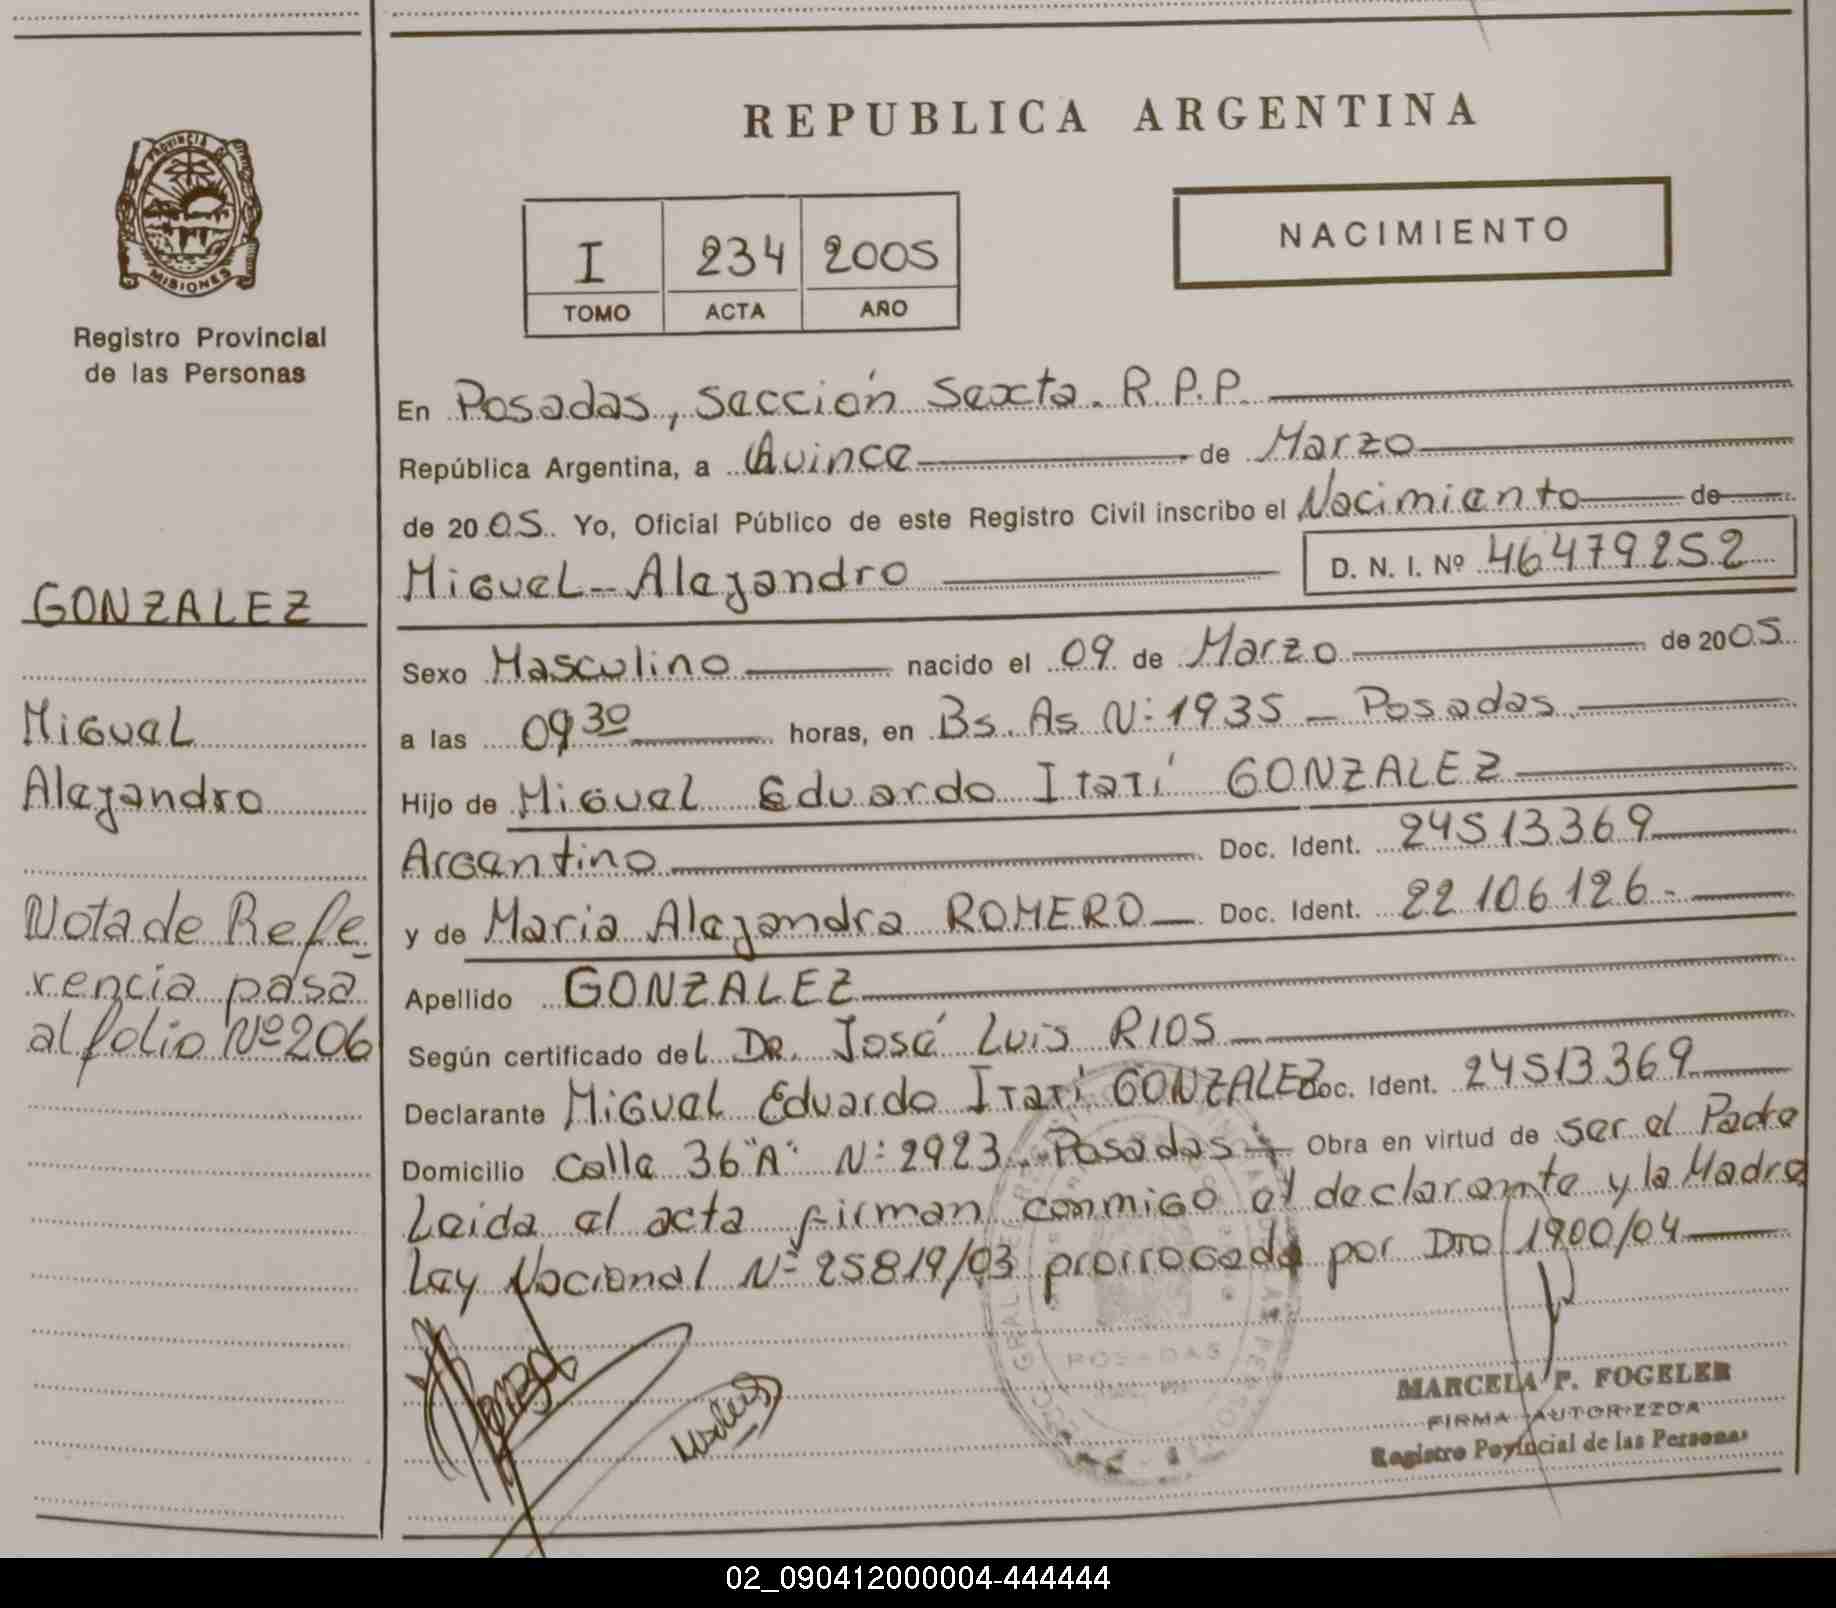 PROVINCIA DE
MISIONES
Registro Provincial
de las Personas
GONZALEZ
Miguel
Alejandro
Nota de Refe-
rencia pasa
al folio Nº 206
REPUBLICA ARGENTINA
I 234 2005
TOMO ACTA AÑO
NACIMIENTO
En Posadas, Sección Sexta. R.P.P.
República Argentina, a Quince de Marzo
de 2005. Yo, Oficial Público de este Registro Civil inscribo el Nacimiento de
Miguel Alejandro D. N. I. Nº 46479252
Sexo Masculino nacido el 09 de Marzo de 2005
a las 09 30 horas, en Bs. As Nº 1935 - Posadas.
Hijo de Miguel Eduardo Itatí GONZALEZ
Argentino Doc. Ident. 24513369
y de Maria Alejandra ROMERO Doc. Ident. 22106126.
Apellido GONZALEZ
Según certificado del Dr. José Luis RIOS
Declarante Miguel Eduardo Itatí GONZALEZ Doc. Ident. 24513369
Domicilio Calle 36 "A" Nº 2923. Posadas Obra en virtud de ser el Padre
Leida el acta firman conmigo el declarante y la Madre
Ley Nacional Nº 25819/03 prorrogada por Dto 1900/04
POSADAS
MARCELA P. FOGELER
FIRMA AUTORIZZDA
Registro Povincial de las Personas
02_090412000004-444444